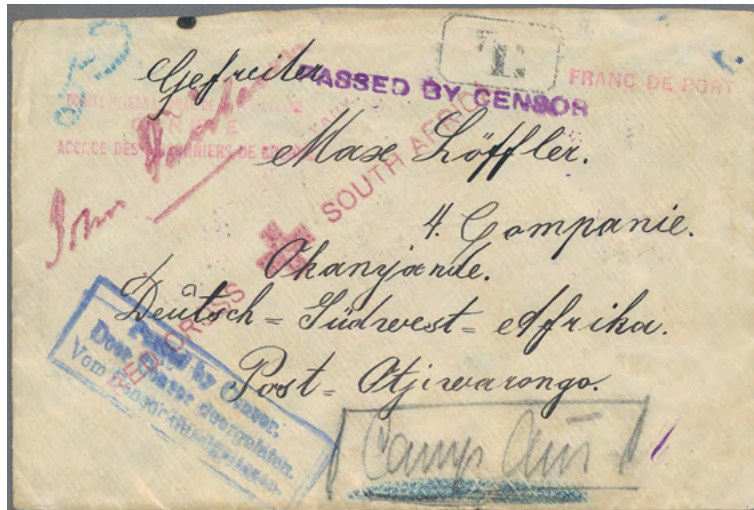 Gefreiter
PASSED BY CENSOR
T
FRANC DE PORT
GENÈVE
AGENCE DES PRISONNIERS DE GUERRE
Max Löffler.
RED CROSS SOUTH AFRICA
4. Companie.
Okanjande.
Deutsch=Südwest=Afrika.
Post=Otjiwarongo.
Passed by Censor.
Door Censor doorgelaten.
Vom Censor durchgelassen.
Camp Aus